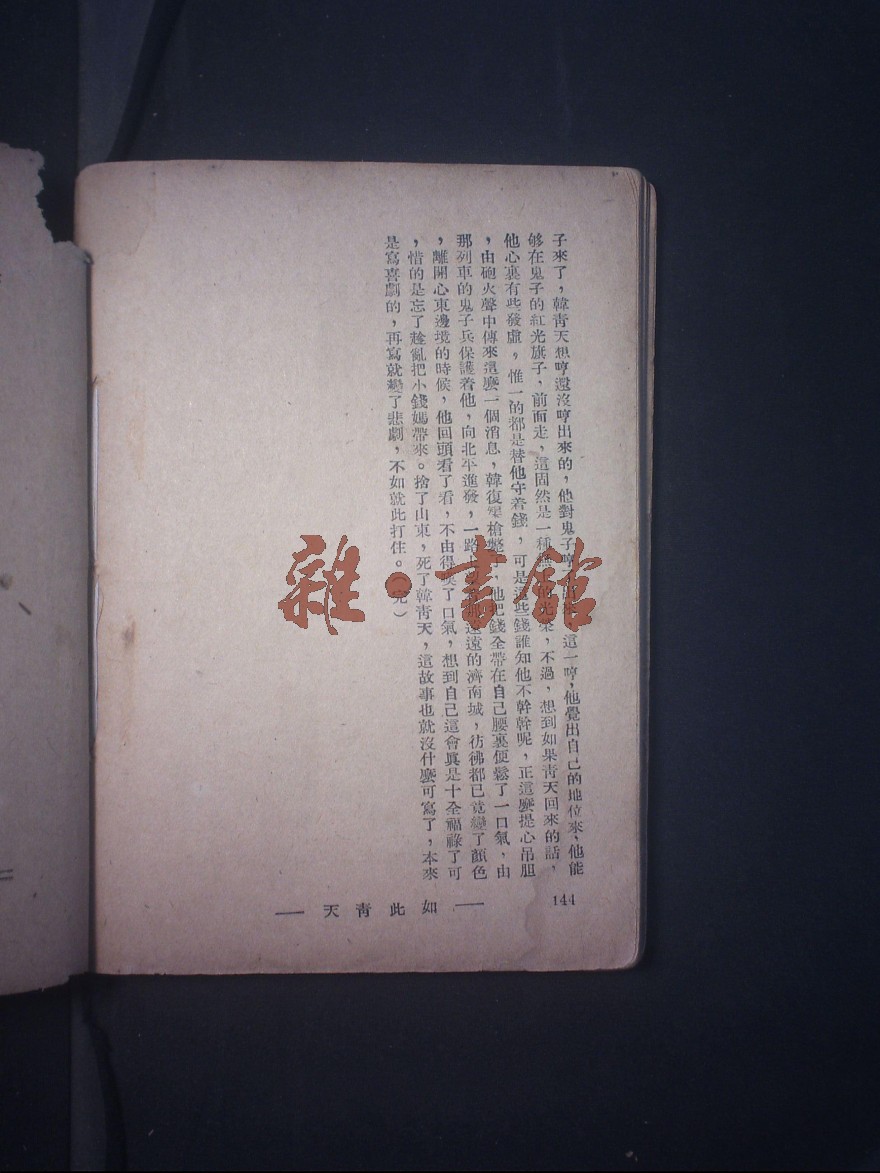 子來了，韓靑天想哼還沒哼出來的，他對鬼子哼 這一哼，他覺出自己的地位來，他能
够在鬼子的紅光旗子，前面走，這固然是一種 光榮，不過，想到如果靑天回來的話，
他心裏有些發虛，惟一的都是替他守着錢，可是這些錢誰知他不幹幹呢，正這麼提心吊胆
，由砲火聲中傳來這麼一個消息，韓復榘槍斃 ，他把錢全帶在自己腰裏便鬆了一口氣，由
那列車的鬼子兵保護着他，向北平進發，一路 遠遠的濟南城，彷彿都已竟變了顏色
，離開心東邊境的時候，他回頭看了看，不由得嘆了口氣，想到自己這會眞是十全福祿了可
，惜的是忘了趁亂把小錢媽帶來。捨了山東，死了韓靑天，這故事也就沒什麼可寫了，本來
是寫喜劇的，再寫就變了悲劇，不如就此打住。（完）
雜·書館
——如此靑天——
144